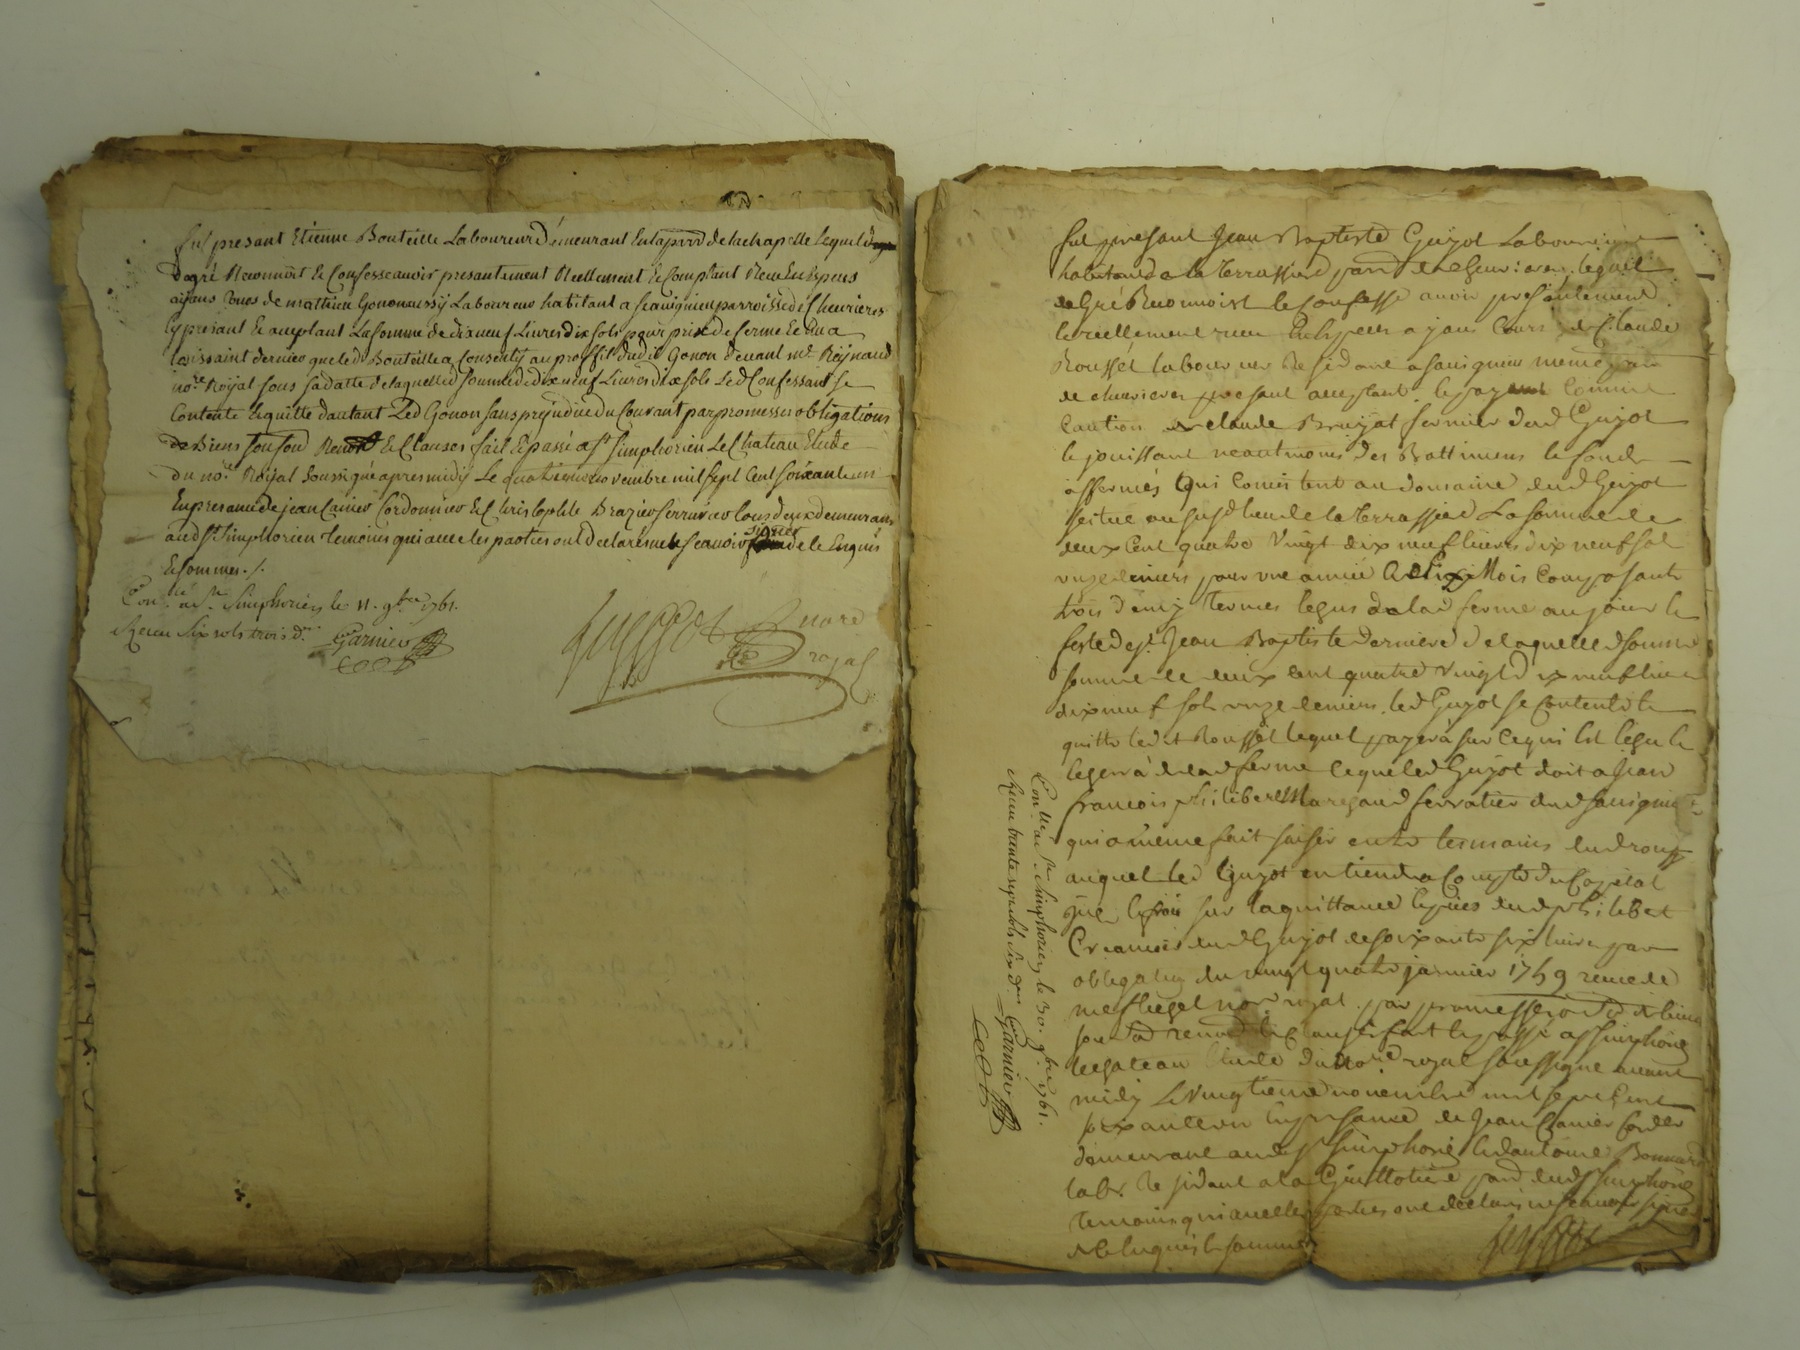 fut presant Etienne Bouteille Laboureur demeurant en la parr de la chapelle Lequel
de gré Reconnoit Et Confesse avoir presantement Reellement Et Comptant Receu En Espens
aijans Cours de mathieu Gonon aussÿ Laboureur habitant a parroisse de Cheurieres
Cy presant Et aceptant La somme de dixneuf Livres dix sols pour prix de ferme Echu a
toussaint dernier que led Bouteille a Consenty au proffit dudit Gonon devant me Reÿnaud
nore Roÿal sous sa datte de laquelle d somme de dixneuf Livres dix sols Led Confessant se
Contente Et quitte d'autant Led Gonon sans prejudice du Courant par promesses obligations
de Biens Et Clauses fait Et passé a st simphorien Le Chateau Etude
du nore Roÿal soussigné apres midÿ Le quatrieme novembre mil sept Cent soixante un
En presance de jean Cordonnier Et Christophle Brazier serrurier tous deux demeurans
aud st simphorien temoins qui avec les parties ont declaré ne sçavoir signer de ce Enquis
Et sommes ./.
Conllé a St Simphorien le 11. 9bre 1761.
Receu six sols trois drs Garnier
nore
royal
fut presant Jean Baptiste Guÿot Laboureur
habitand a la terrassierd parr de cheurieres lequel
de Gré Reconnoist Et Confesse avoir presentement
Et reellement receu En Especes ajans Cours de Claude
Rousset laboureur Residant a meme parr
de cheurieres presant aceptant Et payant Comme
Caution de claude Bruÿat fermier dud Guÿot
Et jouissant neantmoins des Battimens Et fonds
affermés qui Consistent au domaine dud Guÿot
situé au susd lieu de la terrassierd La somme de
deux Cent quatre vingt dix neuf livres dix neuf sols
unze deniers pour une année Mois Composants
trois termes Echus de lad ferme au jour Et
feste de st Jean Baptiste derniere de laquelle d somme
somme de deux Cent quatre vingt dix neuf livres
dix neuf sols unze deniers led Guÿot se Contente Et
quitte ledit Rousset lequel payera sur Ce qui Est Echu Et
Echerra de lad ferme Ce que led Guÿot doit a Jean
francois philibert dud
qui a meme fait saisir entre les mains dud
auquel led Guÿot en tiendra Compte du Capital
que frais sur la quittance dud philibert
Creancier dud Guÿot de soixante six livres par
obligation du vingt quatre janvier 1759 receue de
me nore royal par promesses
fait Et passé a st simphorien
Le Chateau Etude du nore royal soussigne avant
midÿ Le vingtieme novembre mil sept Cent
soixante un En presance de Jean
demeurant aud st simphorien Et d'antoine Bonnard
labr Residant a la Guillotiere parr dud st simphorien
temoins qui avec les parties ont declaré ne scavoir signer
de ce Enquis Et sommés
Conllé a St Simphorien le 30. 9bre 1761.
Receu trente sept sols six drs Garnier